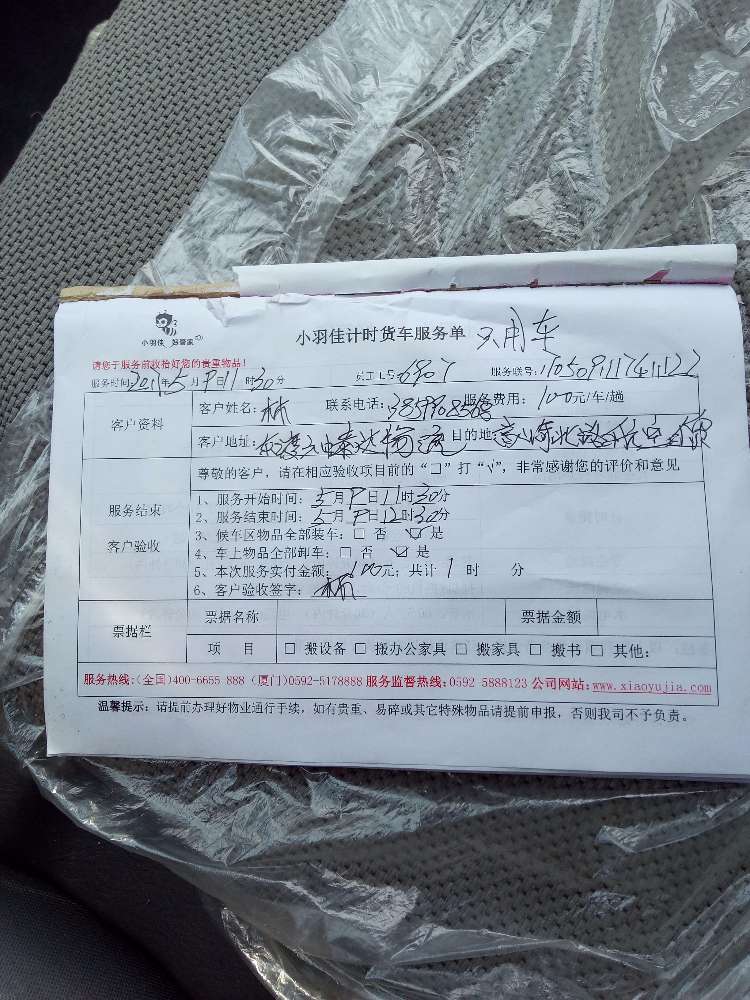 小羽佳 好管家
小羽佳计时货车服务单 只用车
请您于服务前收拾好您的贵重物品!
服务时间:2017年5月9日11时30分 员工工号:6907 服务联号:170509111741122
客户资料
客户姓名:林 联系电话: 服务费用:100元/车/趟
客户地址: 目的地:
服务结束
客户验收
尊敬的客户,请在相应验收项目前的“□”打“√”,非常感谢您的评价和意见
1、服务开始时间:5月9日11时30分
2、服务结束时间:5月9日12时30分
3、候车区物品全部装车:□ 否 ☑ 是
4、车上物品全部卸车:□ 否 ☑ 是
5、本次服务实付金额:100元;共计1时 分
6、客户验收签字:林
票据栏
票据名称 票据金额
项 目 □ 搬设备 □ 搬办公家具 □ 搬家具 □ 搬书 □ 其他:
服务热线:(全国)400-6655 888 (厦门)0592-5178888 服务监督热线:0592 5888123 公司网站:www.xiaoyujia.com
温馨提示:请提前办理好物业通行手续,如有贵重、易碎或其它特殊物品请提前申报,否则我司不予负责。